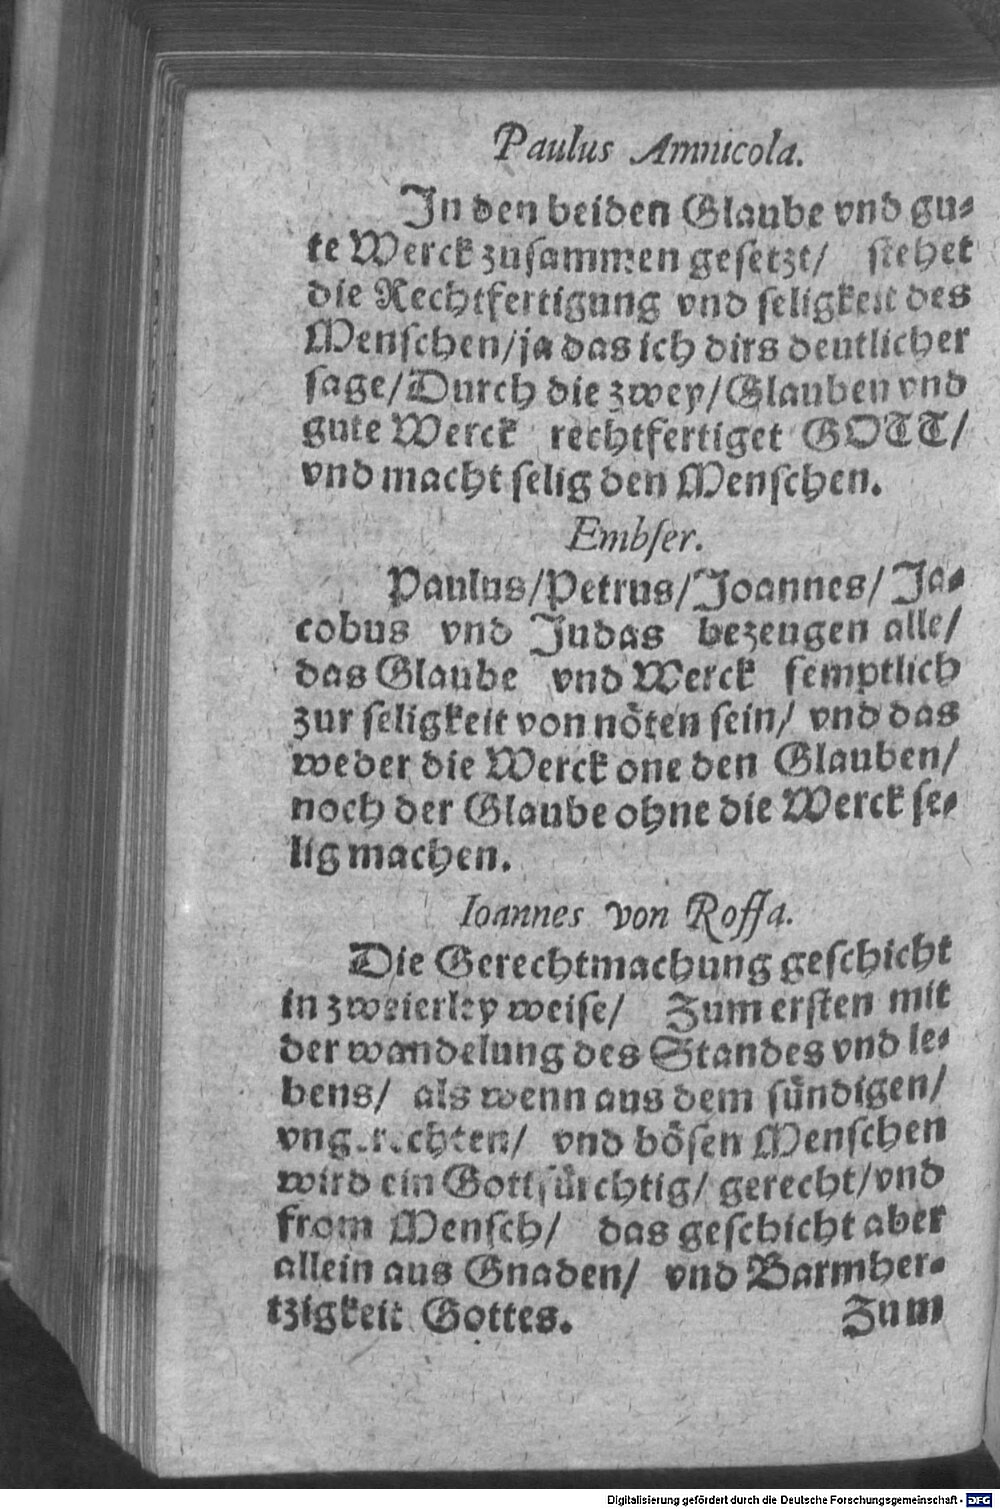 Paulus Amnicola.
In den beiden Glaube vnd gu-
te Werck zusammen gesetzt/ stehet
die Rechtfertigung vnd seligkeit des
Menschen/ja das ich dirs deutlicher
sage/Durch die zwey/Glauben vnd
gute Werck rechtfertiget GOTT/
vnd macht selig den Menschen.
Embser.
Paulus/Petrus/Joannes/Ja-
cobus vnd Judas bezeugen alle/
das Glaube vnd Werck semptlich
zur seligkeit von nöten sein/ vnd das
weder die Werck one den Glauben/
noch der Glaube ohne die Werck se-
lig machen.
Ioannes von Roffa.
Die Gerechtmachung geschicht
in zweierley weise/ Zum ersten mit
der wandelung des Standes vnd le-
bens/ als wenn aus dem sündigen/
vngerechten/ vnd bösen Menschen
wird ein Gottfürchtig/ gerecht/vnd
from Mensch/ das geschicht aber
allein aus Gnaden/ vnd Barmher-
tzigkeit Gottes. Zum
Digitalisierung gefördert durch die Deutsche Forschungsgemeinschaft - DFG